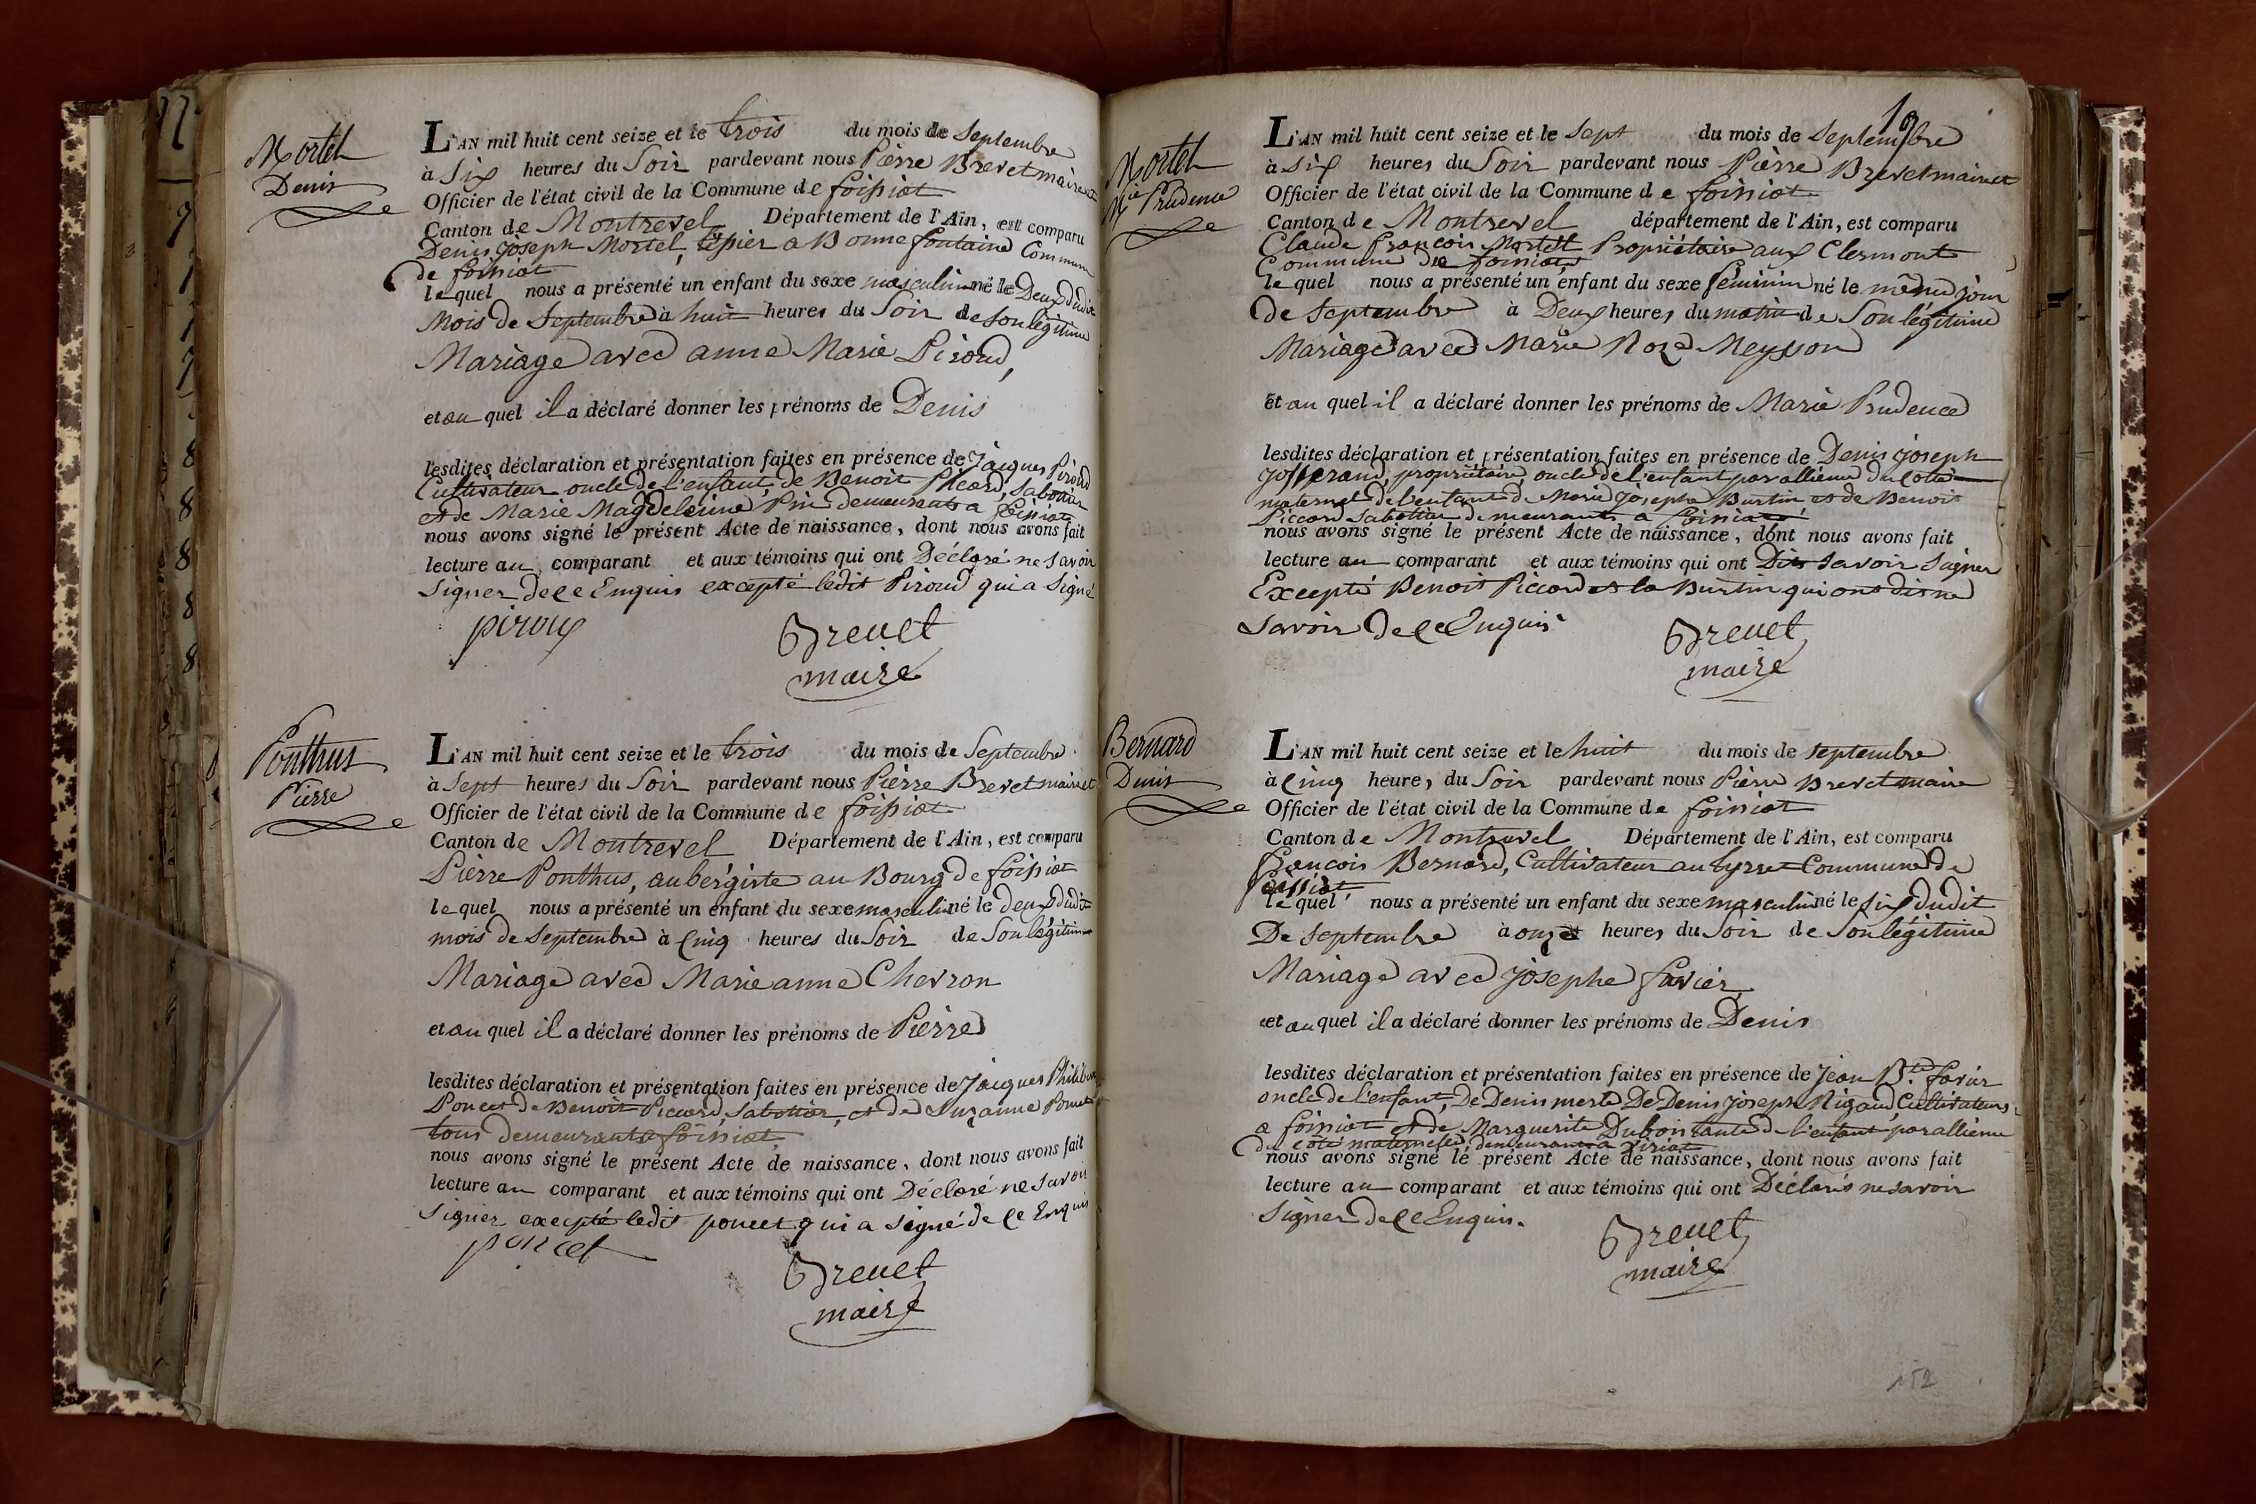 Mortel
Denis
L'AN mil huit cent seize et le trois du mois de Septembre
à Six heures du Soir pardevant nous Pierre Brevet maire et
Officier de l'état civil de la Commune de foissiat
Canton de Montrevel Département de l'Ain, est comparu
Denis joseph Mortel, tepier a Bonne fontaine Commune
de foissiat
le quel nous a présenté un enfant du sexe masculin né le Deux dudit
Mois de Septembre à huit heures du Soir de Son légitime
Mariage avec anne Marie Piroud,
et au quel il a déclaré donner les prénoms de Denis
lesdites déclaration et présentation faites en présence de Jacques Piroud
Cultivateur oncle de l'enfant, de Benoit Picard, Sabotier
et de Marie Magdeleine Pin demeurants a foissiat
nous avons signé le présent Acte de naissance, dont nous avons fait
lecture au comparant et aux témoins qui ont Déclaré ne Savoir
Signer de ce Enquis excepté ledit Piroud qui a Signé
piroux
Brevet
maire
Ponthus
Pierre
L'AN mil huit cent seize et le trois du mois de Septembre
à Sept heures du Soir pardevant nous Pierre Brevet maire et
Officier de l'état civil de la Commune de foissiat
Canton de Montrevel Département de l'Ain, est comparu
Pierre Ponthus, aubergiste au Bourg de foissiat
le quel nous a présenté un enfant du sexe masculin né le deux dudit
mois de Septembre à Cinq heures du Soir de Son légitime
Mariage avec Marie anne Chevron
et au quel il a déclaré donner les prénoms de Pierre
lesdites déclaration et présentation faites en présence de Jacques Philibert
Poncet de Benoit Picard, Sabottier, et de Suzanne Poncet
tous demeurants a foissiat
nous avons signé le présent Acte de naissance, dont nous avons fait
lecture au comparant et aux témoins qui ont Déclaré ne Savoir
Signer excepté ledit poncet qui a Signé de Ce Enquis
poncet
Brevet
maire
19
Mortel
Mie Prudence
L'AN mil huit cent seize et le Sept du mois de Septembre
à Six heures du Soir pardevant nous Pierre Brevet maire et
Officier de l'état civil de la Commune de foissiat
Canton de Montrevel département de l'Ain, est comparu
Claude françois Mortel Propriétaire aux Clermont
Commune de foissiat
le quel nous a présenté un enfant du sexe féminin né le même jour
de Septembre à Deux heures du matin de Son légitime
Mariage avec Marie Roze Meysson
et au quel il a déclaré donner les prénoms de Marie Prudence
lesdites déclaration et présentation faites en présence de Denis joseph
Josserand, propriétaire, oncle de l'enfant par allience du Coté
maternel de l'enfant de Marie Josephe Burtin et de Benoit
Piccard Sabottier demeurants a foissiat
nous avons signé le présent Acte de naissance, dont nous avons fait
lecture au comparant et aux témoins qui ont Dits Savoir Signer
Excepté Benoit Piccard et la Burtin qui ont dit ne
Savoir De Ce Enquis
Brevet
maire
Bernard
Denis
L'AN mil huit cent seize et le huit du mois de septembre
à Cinq heures du Soir pardevant nous Pierre Brevet maire
Officier de l'état civil de la Commune de foissiat
Canton de Montrevel Département de l'Ain, est comparu
françois Bernard, Cultivateur au Commune de
foissiat
le quel nous a présenté un enfant du sexe masculin né le Six dudit
De Septembre à onze heures du Soir de Son légitime
Mariage avec josephe favier
et au quel il a déclaré donner les prénoms de Denis
lesdites déclaration et présentation faites en présence de Jean Bte favier
oncle de l'enfant, De Denis merle De Denis joseph Rigaud Cultivateurs
a foissiat et de Marguerite Dubois tante de l'enfant par allience
du coté maternelle, demeurant a Viriat
nous avons signé le présent Acte de naissance, dont nous avons fait
lecture au comparant et aux témoins qui ont Déclarés ne Savoir
Signer De Ce Enquis.
Brevet
maire
152